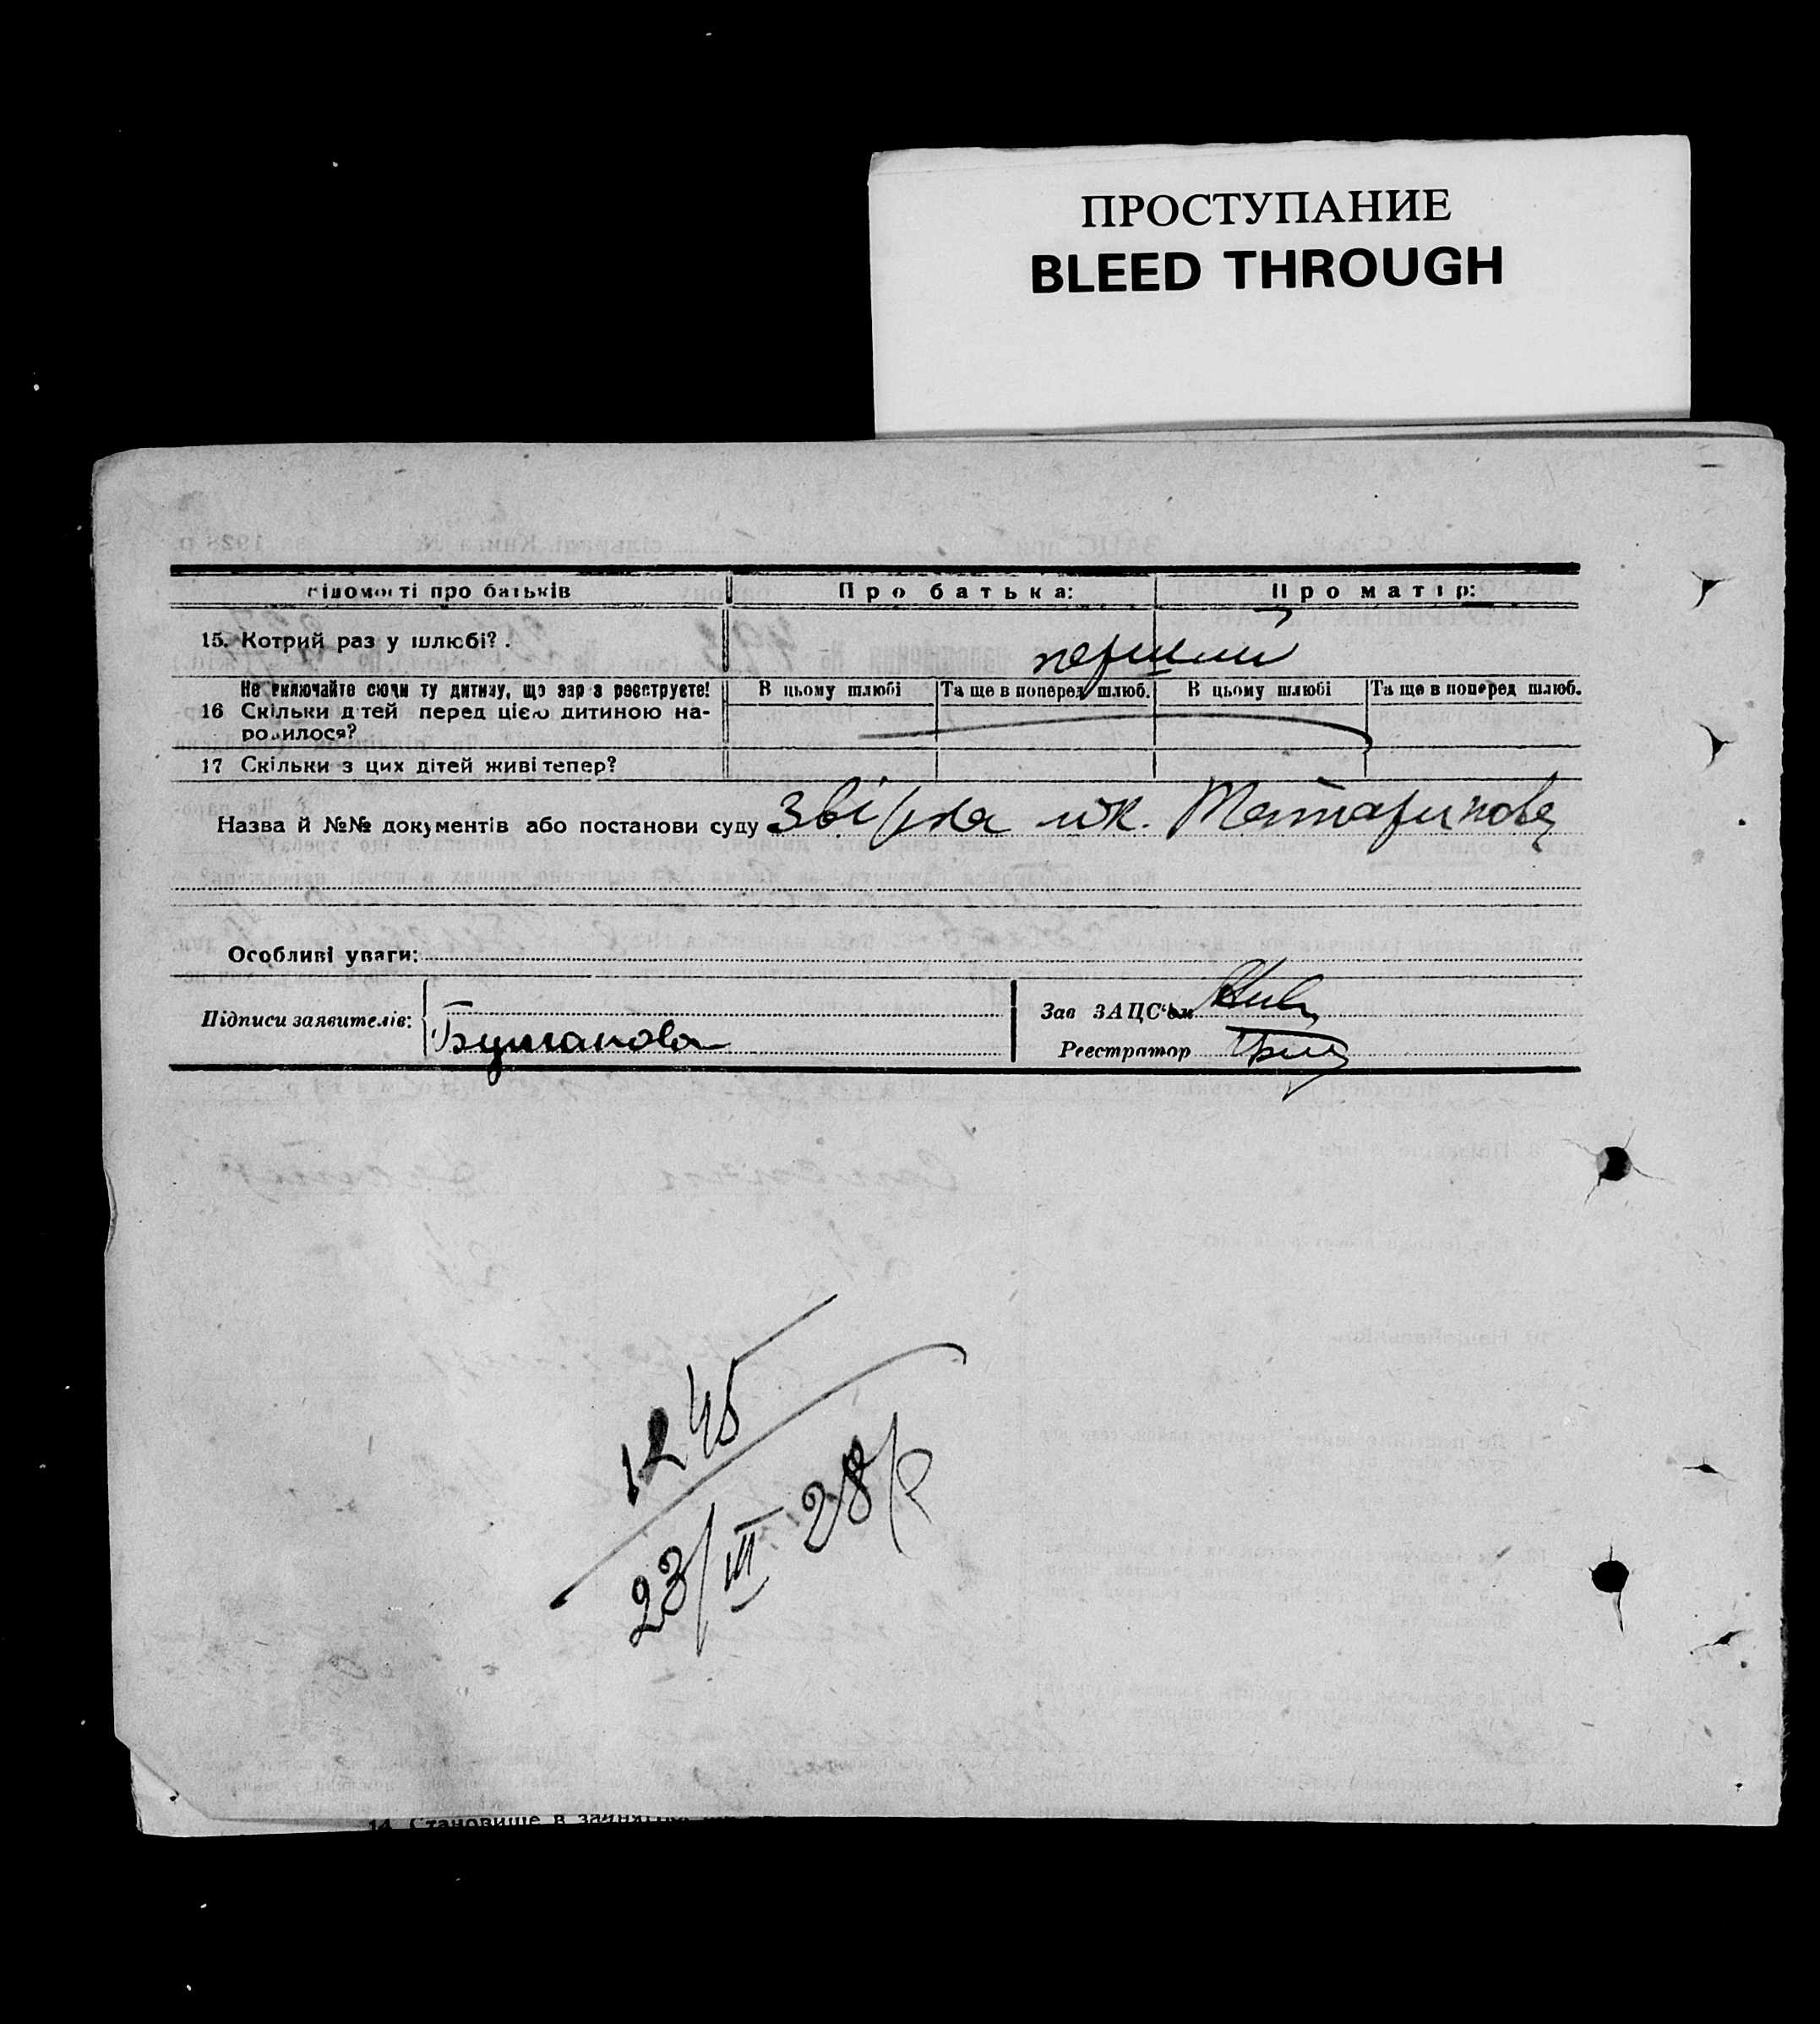 ПРОСТУПАНИЕ
BLEED THROUGH
відомості про батьків Про батька: Про матір:
15. Котрий раз у шлюбі? . перший
Не включайте сюди ту дитину, що зараз реєструєте! В цьому шлюбі Та ще в поперед шлюб. В цьому шлюбі Та ще в поперед шлюб.
16 Скільки дітей перед цією дитиною на-
родилося?
17 Скільки з цих дітей живі тепер?
Назва й №№ документів або постанови суду
Особливі уваги:
Підписи заявителів: Зав ЗАЦС'ом
Бушанова Реєстратор
1245
23/III 28/р
14. Становище в занят